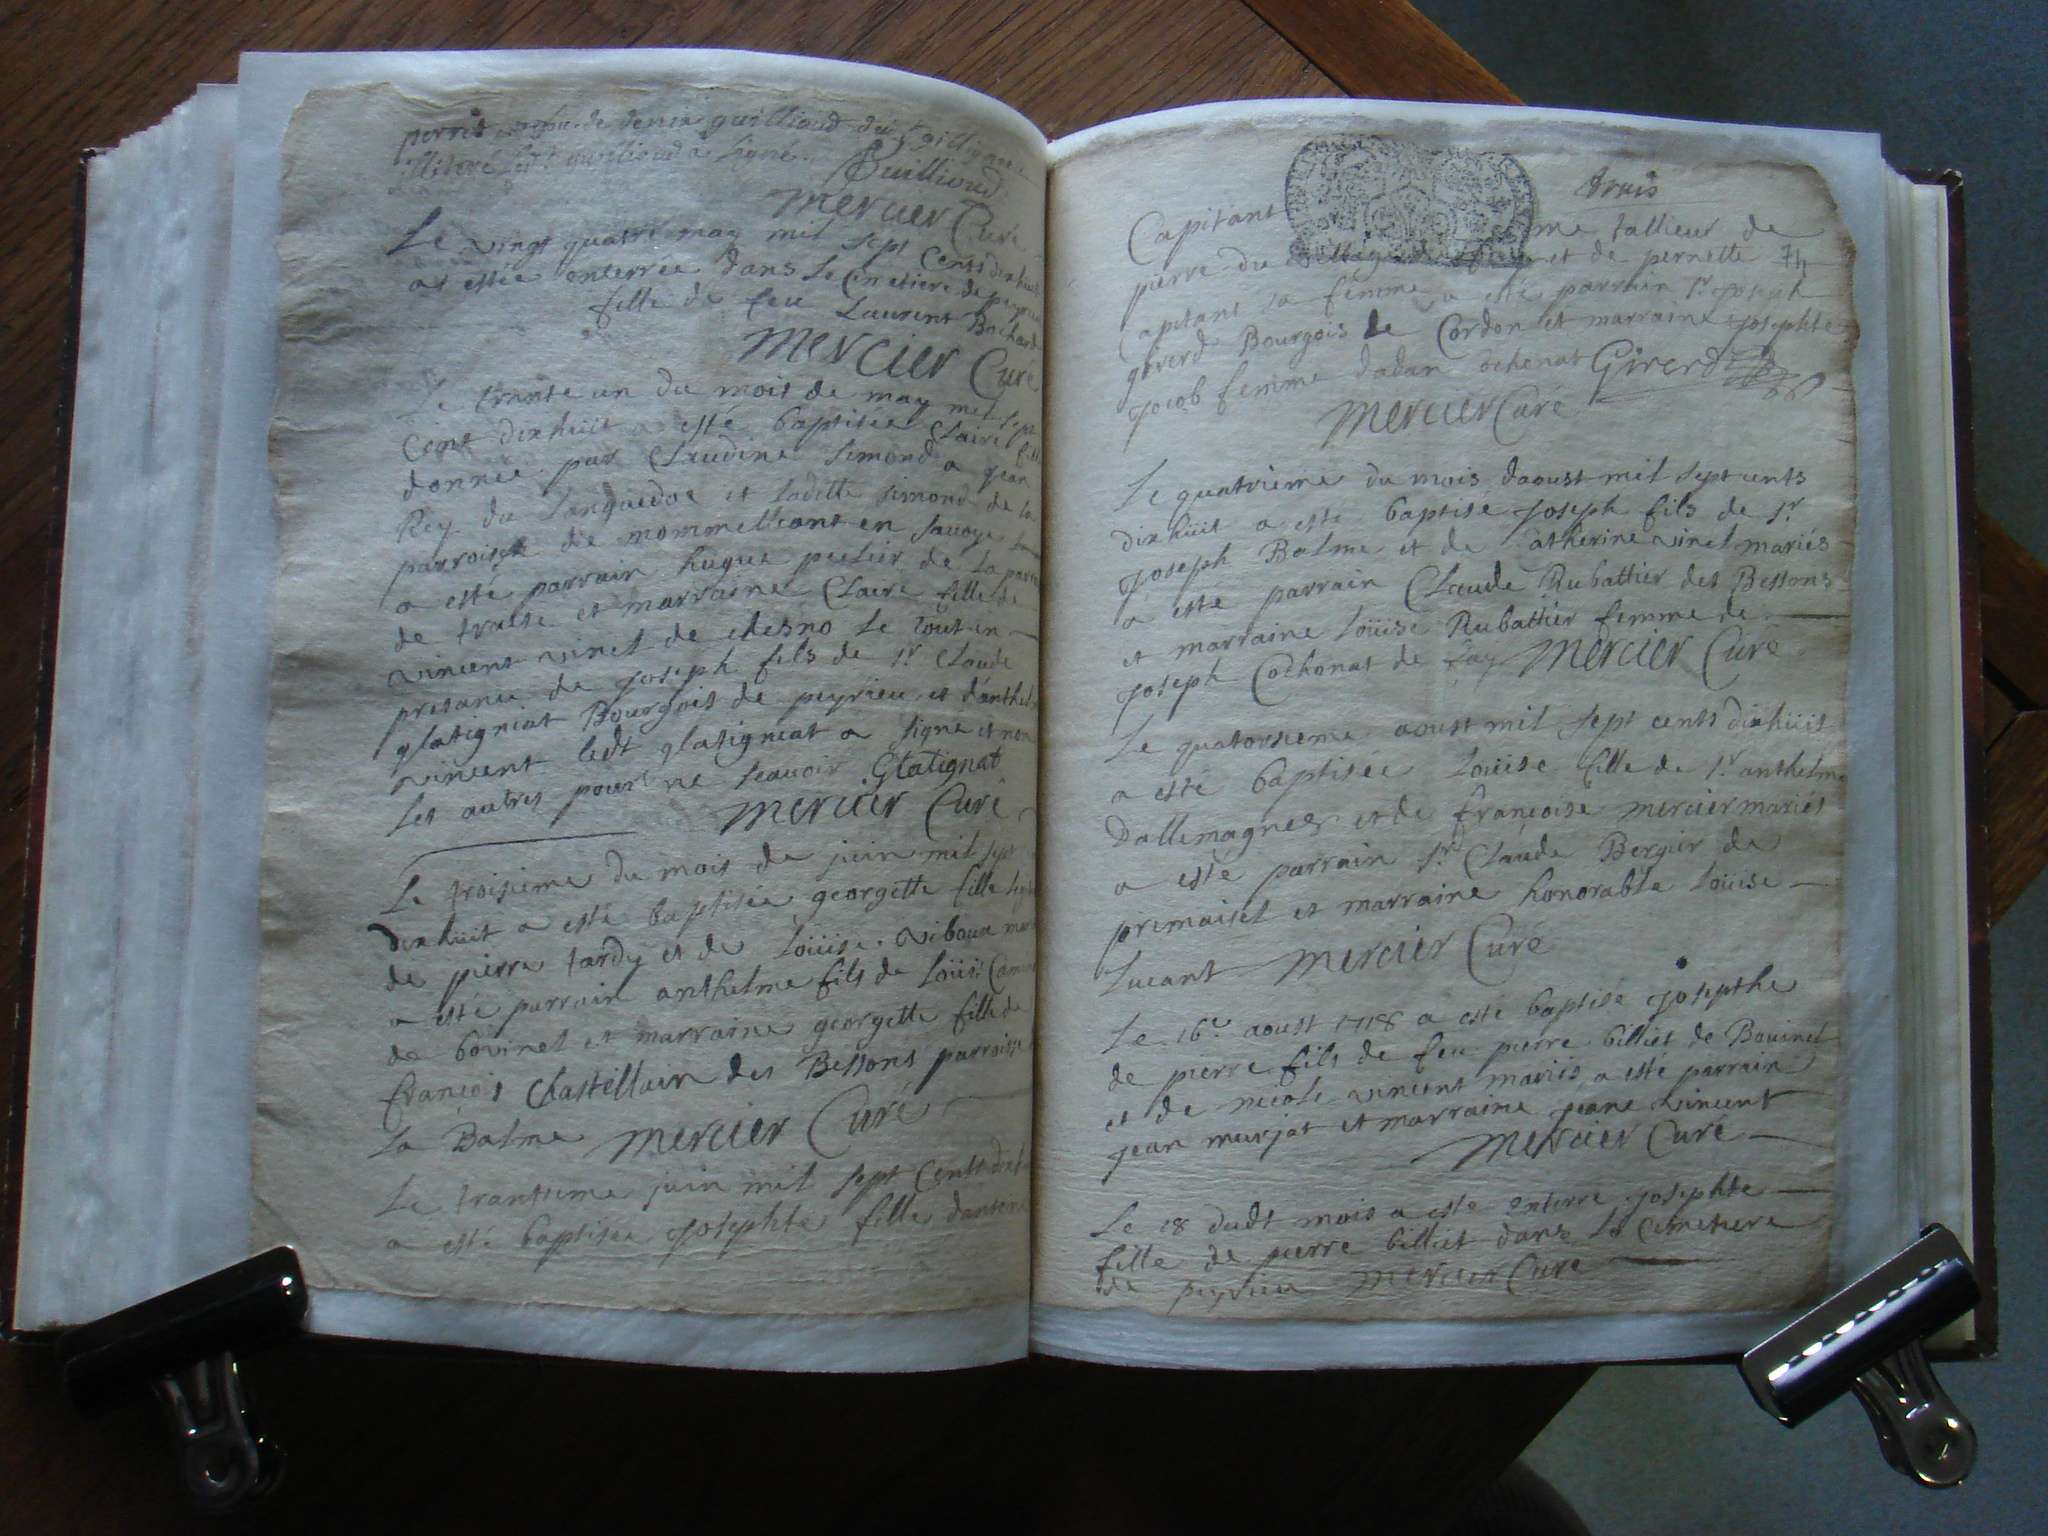 perret de denis guillioud du
illiteré guillioud a signé.
Guillioud
mercier Curé
Le vingt quatre may mil sept cents dixhuit
at estée enterrée dans le Cimetiere de peyrieu
fille de feu Laurent Bochard
mercier Curé
Le trante un du mois de may mil sept
Cent dixhuit a esté baptisée Claire fille
donnée par Claudine simond a jean
Rey du Languedoc et laditte simond de la
parroisse de mommelliant en savoye
a esté parrain hugue de la parro
de traise et marraine Claire fille de
vincent vinel de chesno le tout en
presance de joseph fils de sr Claude
glatigniat Bourgois de peyrieu et d'anthel
vincent ledt glatigniat a signé et non
les autres pour ne scavoir. Glatignat
mercier Curé
Le troisieme du mois de juin mil sept
dixhuit a esté baptisée georgette fille
de pierre tardy et de Loüise viboux mar
a esté parrain anthelme fils de Loüis
de bovinel et marraine georgette fille de
françois Chastellain des Bessons parroisse
La Balme mercier Curé
Le trantieme juin mil sept Cents dixh
a esté baptisée josephte fille dantoi
trois
Capitant me tallieur de
pierre du village de et de pernette 74
Capitant sa femme a esté parrain sr joseph
girerd Bourgois de Cordon et marraine josephte
jacob femme dadan Cochonat Girerd
mercier Curé
Le quatrieme du mois daoust mil sept cents
dixhuit a esté baptisé joseph fils de sr
joseph Balme et de Catherine vinel mariés
a esté parrain Claude Rubattier des Bessons
et marraine Loüise Rubattier femme de
joseph Cochonat de fay mercier Curé
Le quatorsieme aoust mil sept cents dixhuit
a esté baptisée Loüise fille de sr anthelme
Dallemagne et de françoise mercier mariés
a esté parrain sr Claude Bergier de
premaisel et marraine honorable Loüise
Lucant mercier Curé
Le 16e aoust 1718 a esté baptisé josepthe
de pierre fils de feu pierre billiet de Bovinel
et de nicole vincent mariés a esté parrain
jean murjat et marraine jeane vincent
mercier Curé
Le 18 dudt mois a esté enterré josephte
fille de pierre billiet dans le Cimetiere
de peyrieu mercier Curé